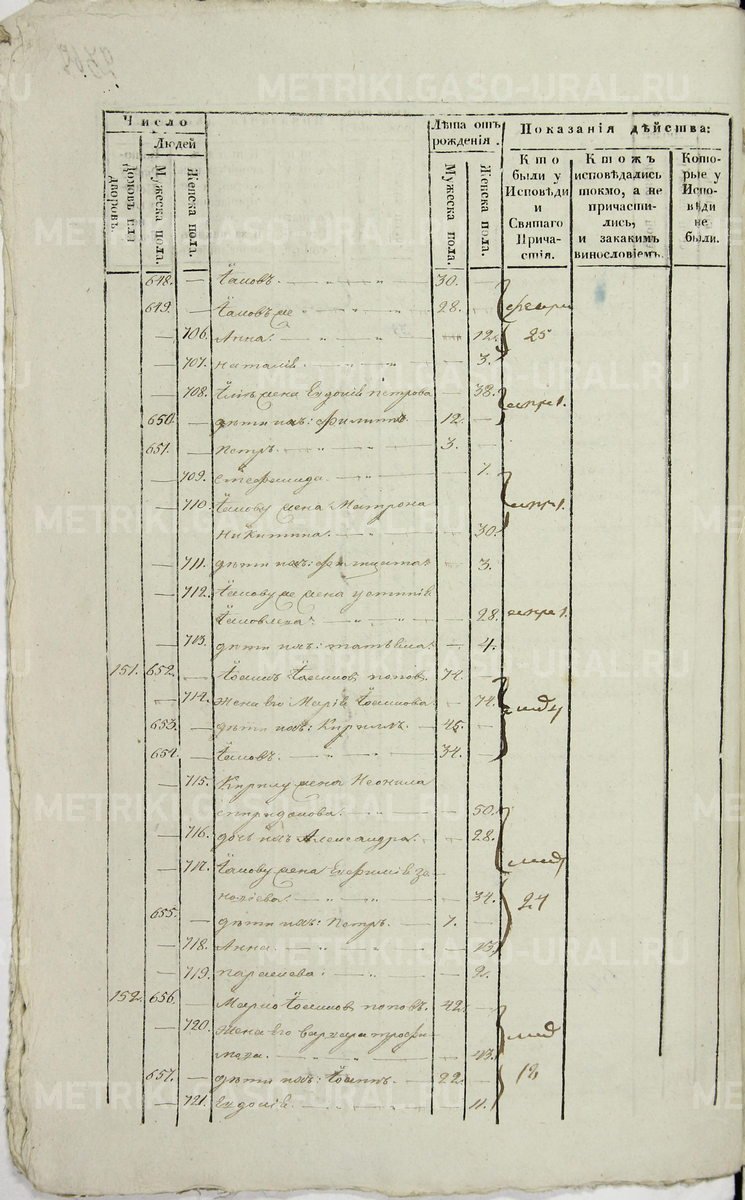 Число
Лѣта отъ рожденія.
Показанія дѣйства:
Людей
Домовъ или дворовъ.
Мужеска пола.
Женска пола.
Мужеска пола.
Женска пола.
Кто были у Исповѣди и Святаго Причастія.
Ктожъ исповѣдались токмо, а не причастились, и закакимъ винословіемъ.
Которые у Исповѣди не были.
648. — Іаковъ. — 30. —
649. — Іаковъ же — 28. —
— 706. Анна. — 12.
25
— 707. Наталія — 3.
— 708. жена Евдокія Петрова — 38.
650. — дѣти ихъ: Филиппъ. 12. —
651. — Петръ. — 3. —
— 709. Стефанида. — 7.
— 710. Іакову жена Матрона
Никитина. — 30.
— 711. дѣти ихъ: — 3.
— 712. Іакову же жена Устинія
Іаковлева — 28.
— 713. дѣти ихъ: Татьяна. — 4.
151. 652. — Іоаннъ Іоанновъ Поповъ. 74. —
— 714. Жена его Марія Іоаннова — 74.
653. — дѣти ихъ: Кириллъ. — 45. —
654. — Іаковъ. — 34. —
— 715. Кирилу жена Неонила
Спиридонова. — 50.
— 716. дочь ихъ Александра. — 28.
— 717. Іакову жена Евфимія За-
— 34.
24
655. — дѣти ихъ: Петръ. — 7. —
— 718. Анна. —
— 719. Параскева: — 2.
152. 656. — Марко Іоанновъ Поповъ. 42. —
— 720. Жена его Варвара Трофи-
мова. — 43.
657. — дѣти ихъ: Іоаннъ. — 22. —
— 721. Евдокія — 11.
METRIKI.GASO-URAL.RU